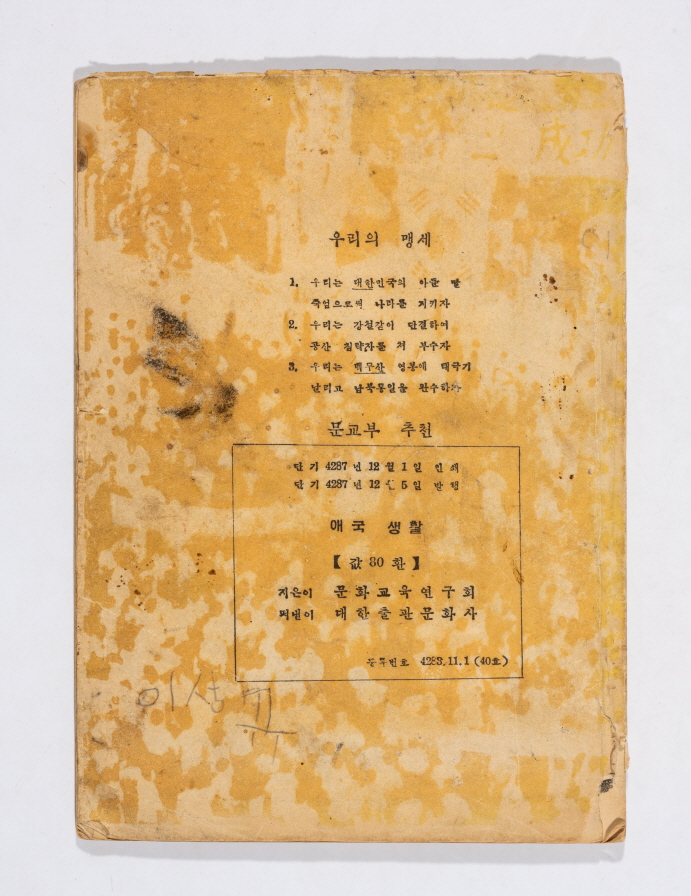 成功
우리의 맹세
1. 우리는 대한민국의 아들 딸
죽엄으로써 나라를 지키자
2. 우리는 강철같이 단결하여
공산 침략자를 쳐 부수자
3. 우리는 백두산 영봉에 태극기
날리고 남북통일을 완수하자
문교부 추천
단기 4287년 12월 1일 인쇄
단기 4287년 12월 5일 발행
애국 생활
【값 80 환】
지은이 문화교육연구회
펴낸이 대한출판문화사
등록번호 4283.11.1 (40호)
이상